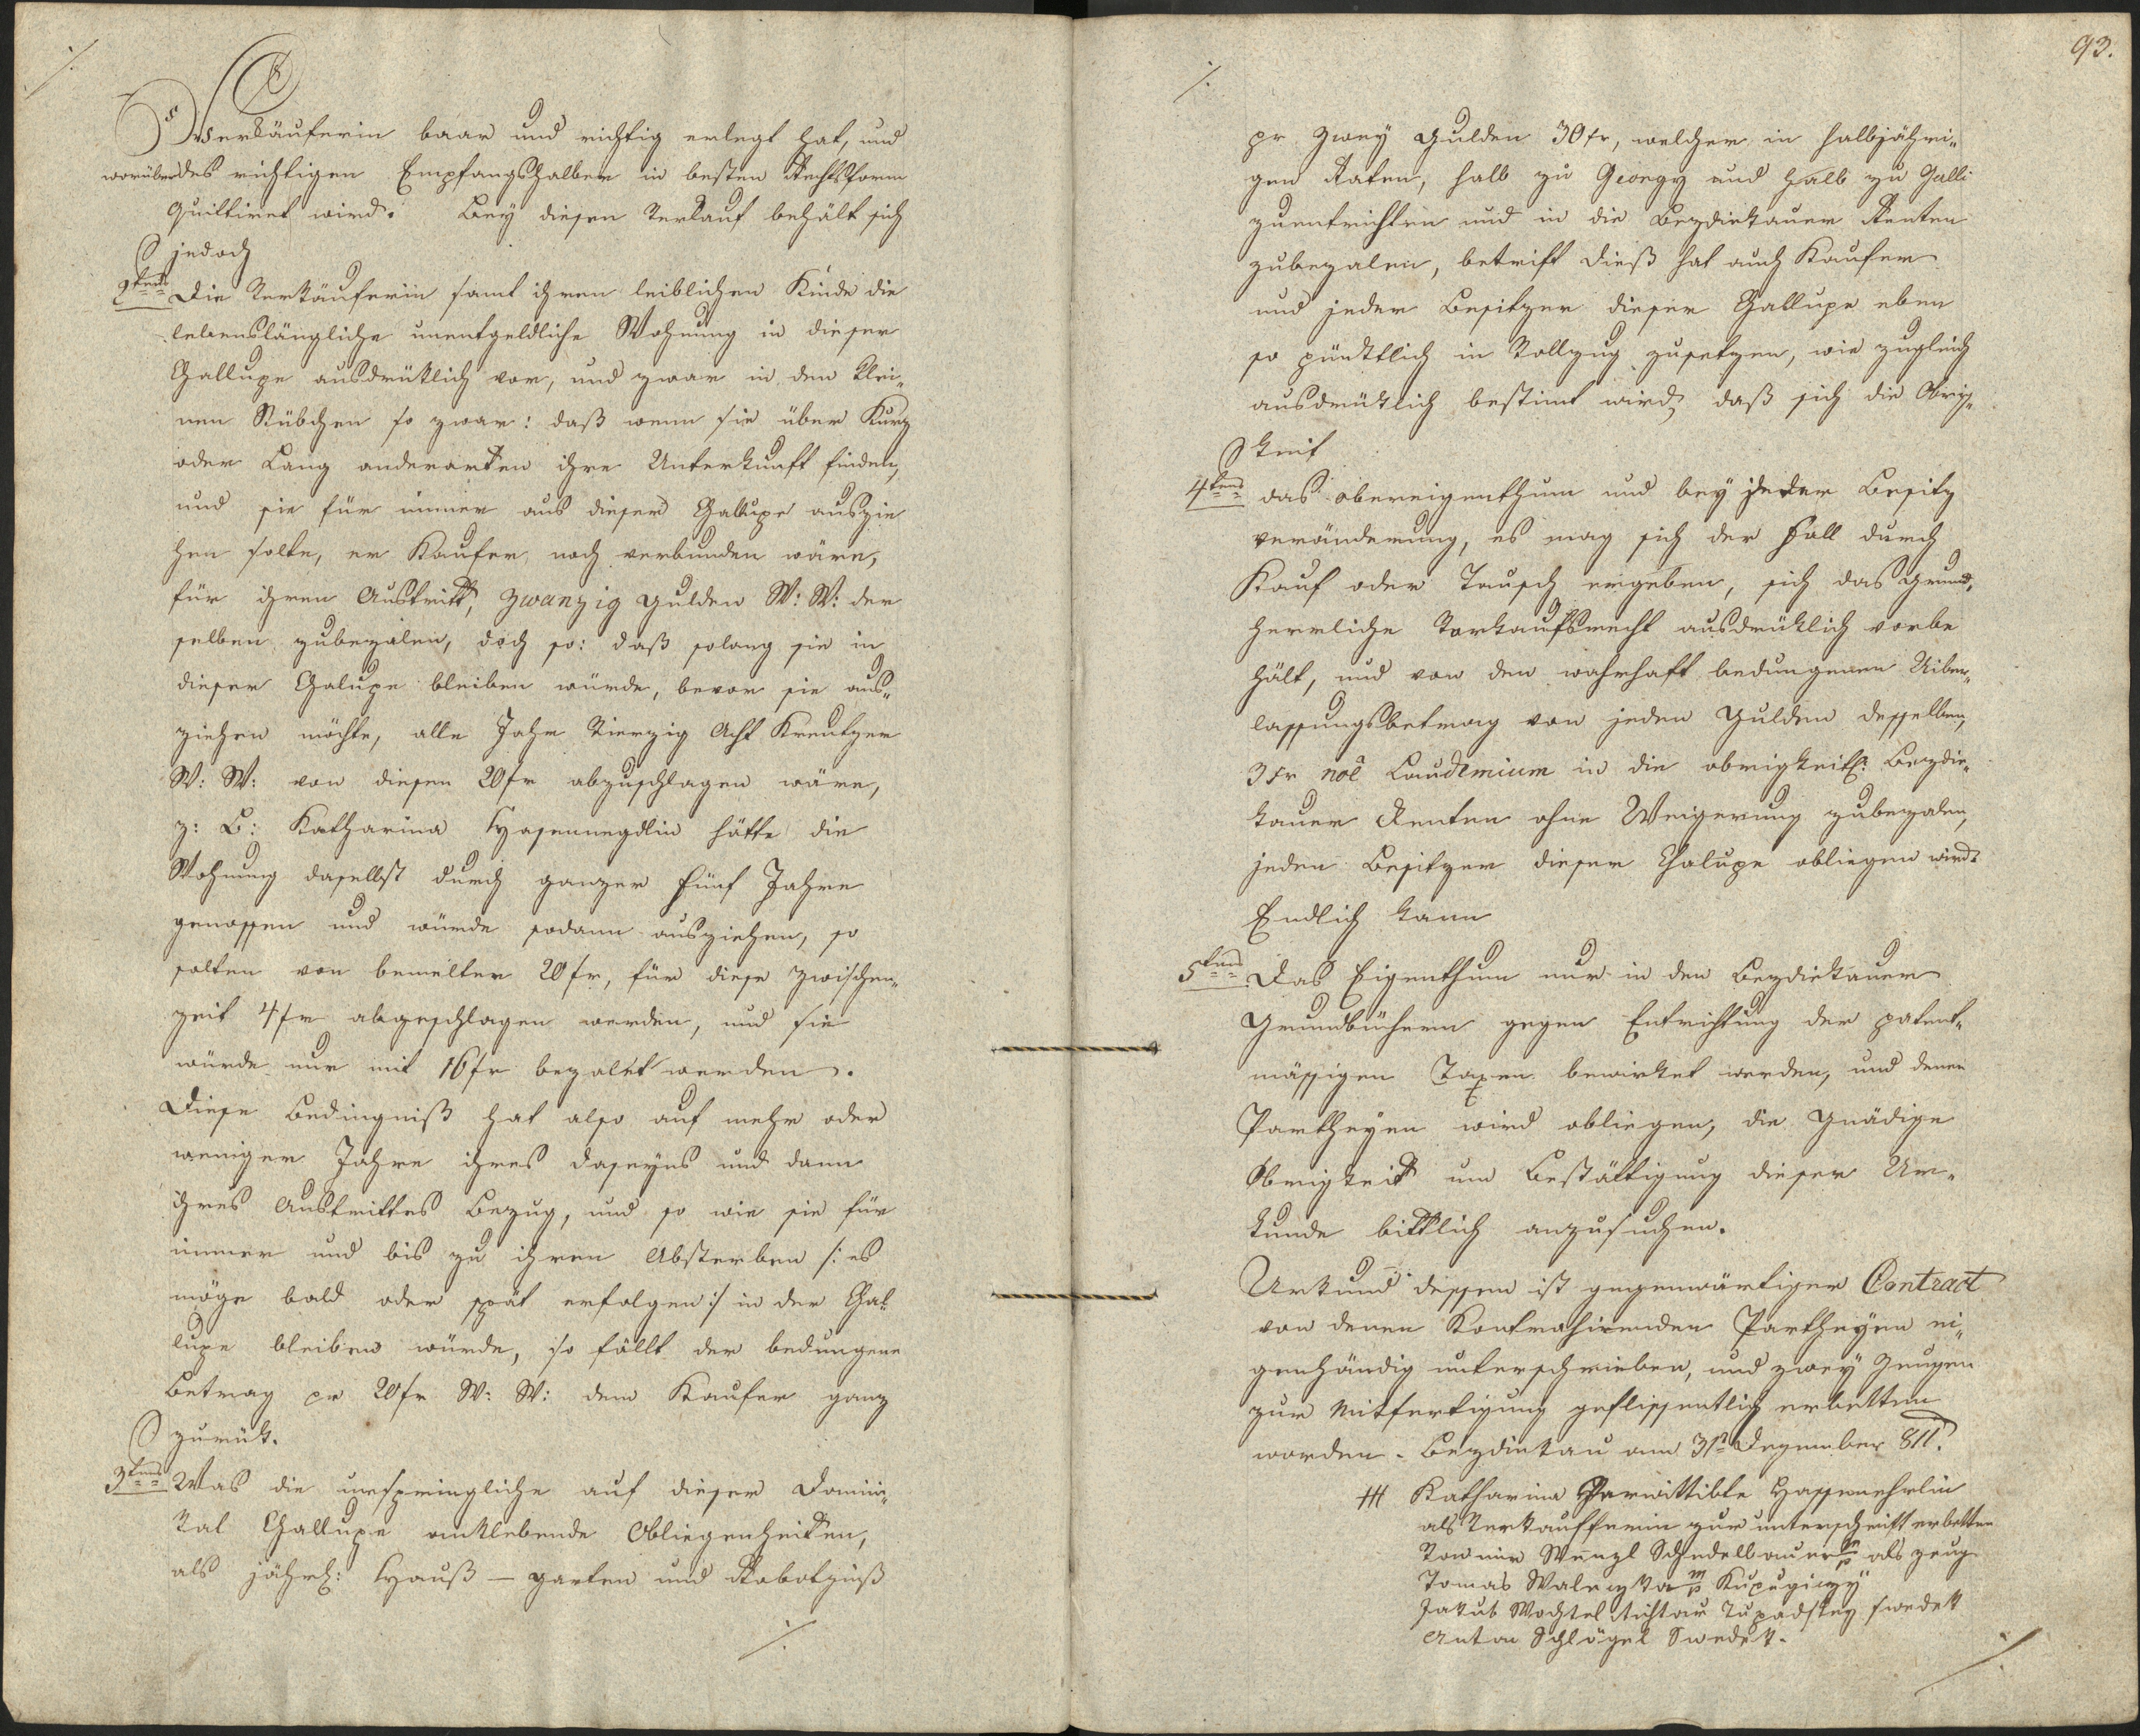 Verkäuferin baar und richtig erlegt hat, und
worüber des richtigen Empfangshalber in besten Rechtsform
Quittiret wird. Bey diesen Verkauf behält sich
jedoch
2tens Die Verkäuferin samt ihren leiblichen Kinde die
lebenslängliche unentgeldliche Wohnung in dieser
Challupe ausdrüklich vor, und zwar in den klei„
nen Stübchen so zwar: daß wenn sie über Kurz
oder Lang anderorten ihre Unterkunft finden,
und sie für immer aus dieser Challupe auszie
hen solte, er Kaufer noch verbunden wäre,
für ihren Austritt, zwanzig Gulden W: W: der
selben zubezalen, doch so: daß solang sie in
dieser Chalupe bleiben würde, bevor sie aus„
ziehen möchte, alle Jahr Vierzig Acht Kreutzer
W: W: von diesen 20 fr abzuschlagen wäre,
z: B: Katharina Hasennegdlin hätte die
Wohnung daselbst durch ganzer fünf Jahre
genossen und würde sodann ausziehen, so
solten von bemelten 20 fr, für diese Zwischen„
zeit 4 fr abgeschlagen werden, und sie
würde nur mit 16 fr bezalet werden.
Diese Bedingniß hat also auf mehr oder
weniger Jahre ihres daseyns und dann
ihres Austrittes Bezug, und so wie sie für
immer und bis zu ihren Absterben /: es
möge bald oder spät erfolgen :/ in der Chal
lupe bleiben würde, so fällt der bedungene
Betrag pr 20 fr W: W: dem Kaufer ganz
zurük.
3tens Was die urspringliche auf dieser Domini„
kal Challupe anklebende Obliegenheiten,
als jährl: Hauß – garten und Robotzinß
93.
pr Zwey Gulden 30 fr, welcher in halbjähri„
gen Raten, halb zu Georgy und halb zu Galli
zuentrichten und in die Bezdiekauer Renten
zubezalen, betrift dieß hat auch Kaufer
und jeder Besitzer dieser Challupe eben
so pünktlich in Vollzug zusetzen, wie zugleich
ausdrüklich bestimt wird, daß sich die Obrig„
keit
4tens das obereigenthum und bey jeder Besitz
veränderung, es mag sich der Fall durch
Kauf oder Tausch ergeben, sich das Grund„
herrliche Vorkaufsrecht ausdrüklich vorbe
hält, und von den wahrhaft bedungenen Uiber„
lassungsbetrag von jeden Gulden desselben,
3 kr noe Laudemium in die obrigkeitl: Bezdie„
kauer Renten ohne Weigerung zubezalen,
jeden Besitzer dieser Chalupe obliegen wird.
Endlich kann
5tens Das Eigenthum nur in den Bezdiekauer
Grundbüchern gegen Entrichtung der patent„
mässigen Taxen bewirket werden, und denen
Partheyen wird obliegen, die Gnädige
Obrigkeit um Bestättigung dieser Ur„
kunde bittlich anzusuchen.
Urkund dessen ist gegenwärtiger Contract
von denen Kontrahirenden Partheyen ei„
genhändig unterschrieben, und zwey Zeugen
zur Mitfertigung geflissentlich erbetten
worden. Bezdiekau am 31t Dezember 811.
+++ Katharina Verwittibte Hassenehrlin
als Verkaufferin zur unterschrift erbetten
Von mir Wenzl Schedelbauer mp als Zeug
Tomas Waleczka mp Kupugiczy
Jakub Wachtel Richtarz Tupadsky swedek
Anton Schlögel Swedek.